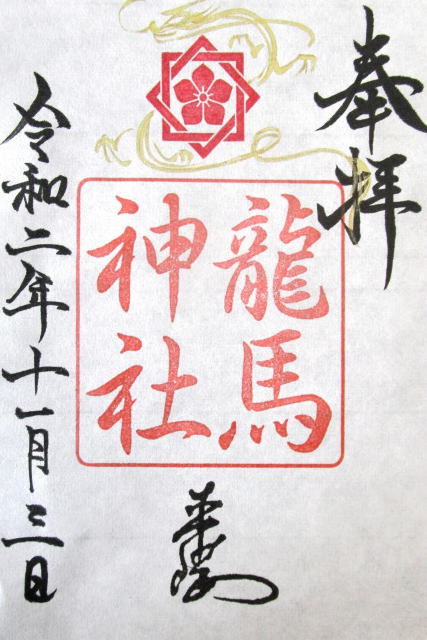 奉拝
龍馬
神社
令和二年十一月三日